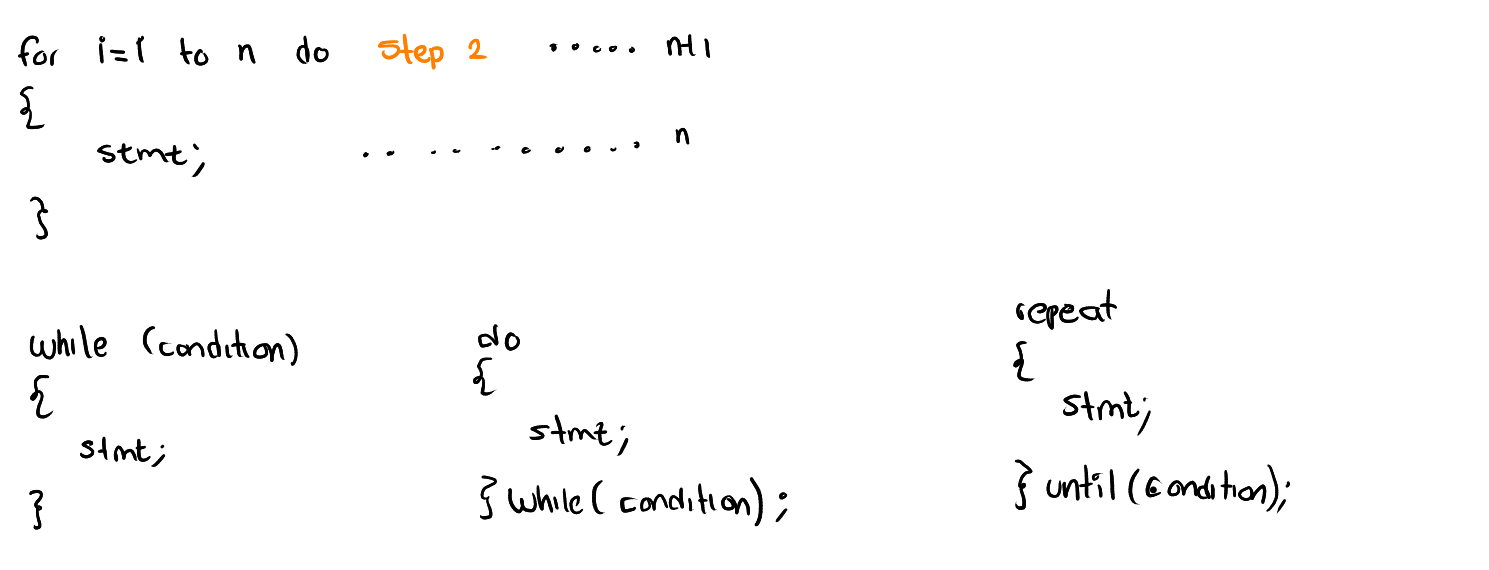 for i=1 to n do step 2 ..... n+1
{
stmt; .......... n
}
while (condition)
{
stmt;
}
do
{
stmt;
} while (condition);
repeat
{
stmt;
} until (condition);